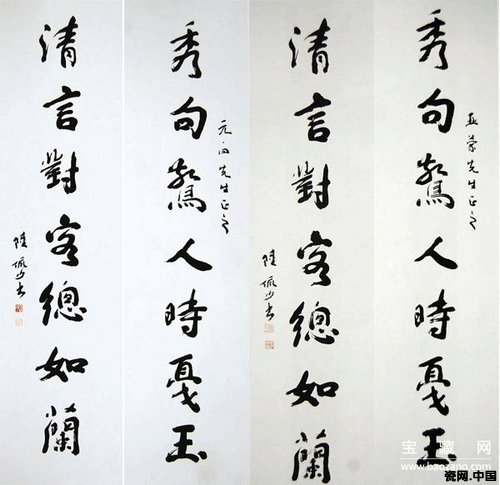 秀句驚人時戛玉
先生正之
清言對客總如蘭
陸佩
秀句驚人時戛玉
先生正之
清言對客總如蘭
陸佩
宝藏网
www.baozang.com
瓷网.中国